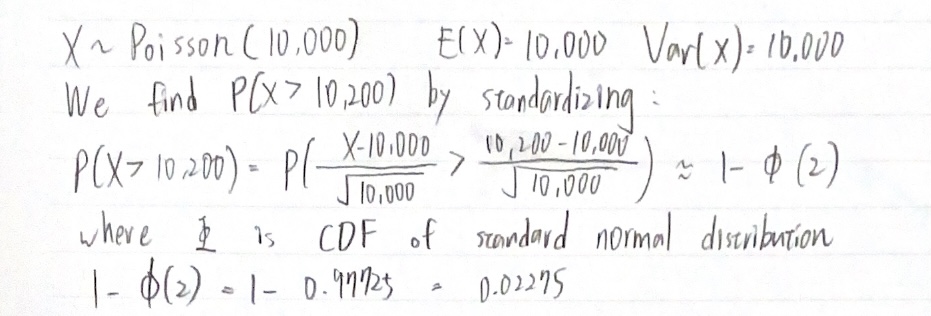 X ~ Poisson(10,000) E(X)= 10,000 Var(X)= 10,000
We find P(X> 10,200) by standardizing :
P(X> 10,200) = P( (X-10,000)/√10,000 > (10,200-10,000)/√10,000 ) ≈ 1- ϕ(2)
where Φ is CDF of standard normal distribution
1- ϕ(2) = 1- 0.97725 = 0.02275